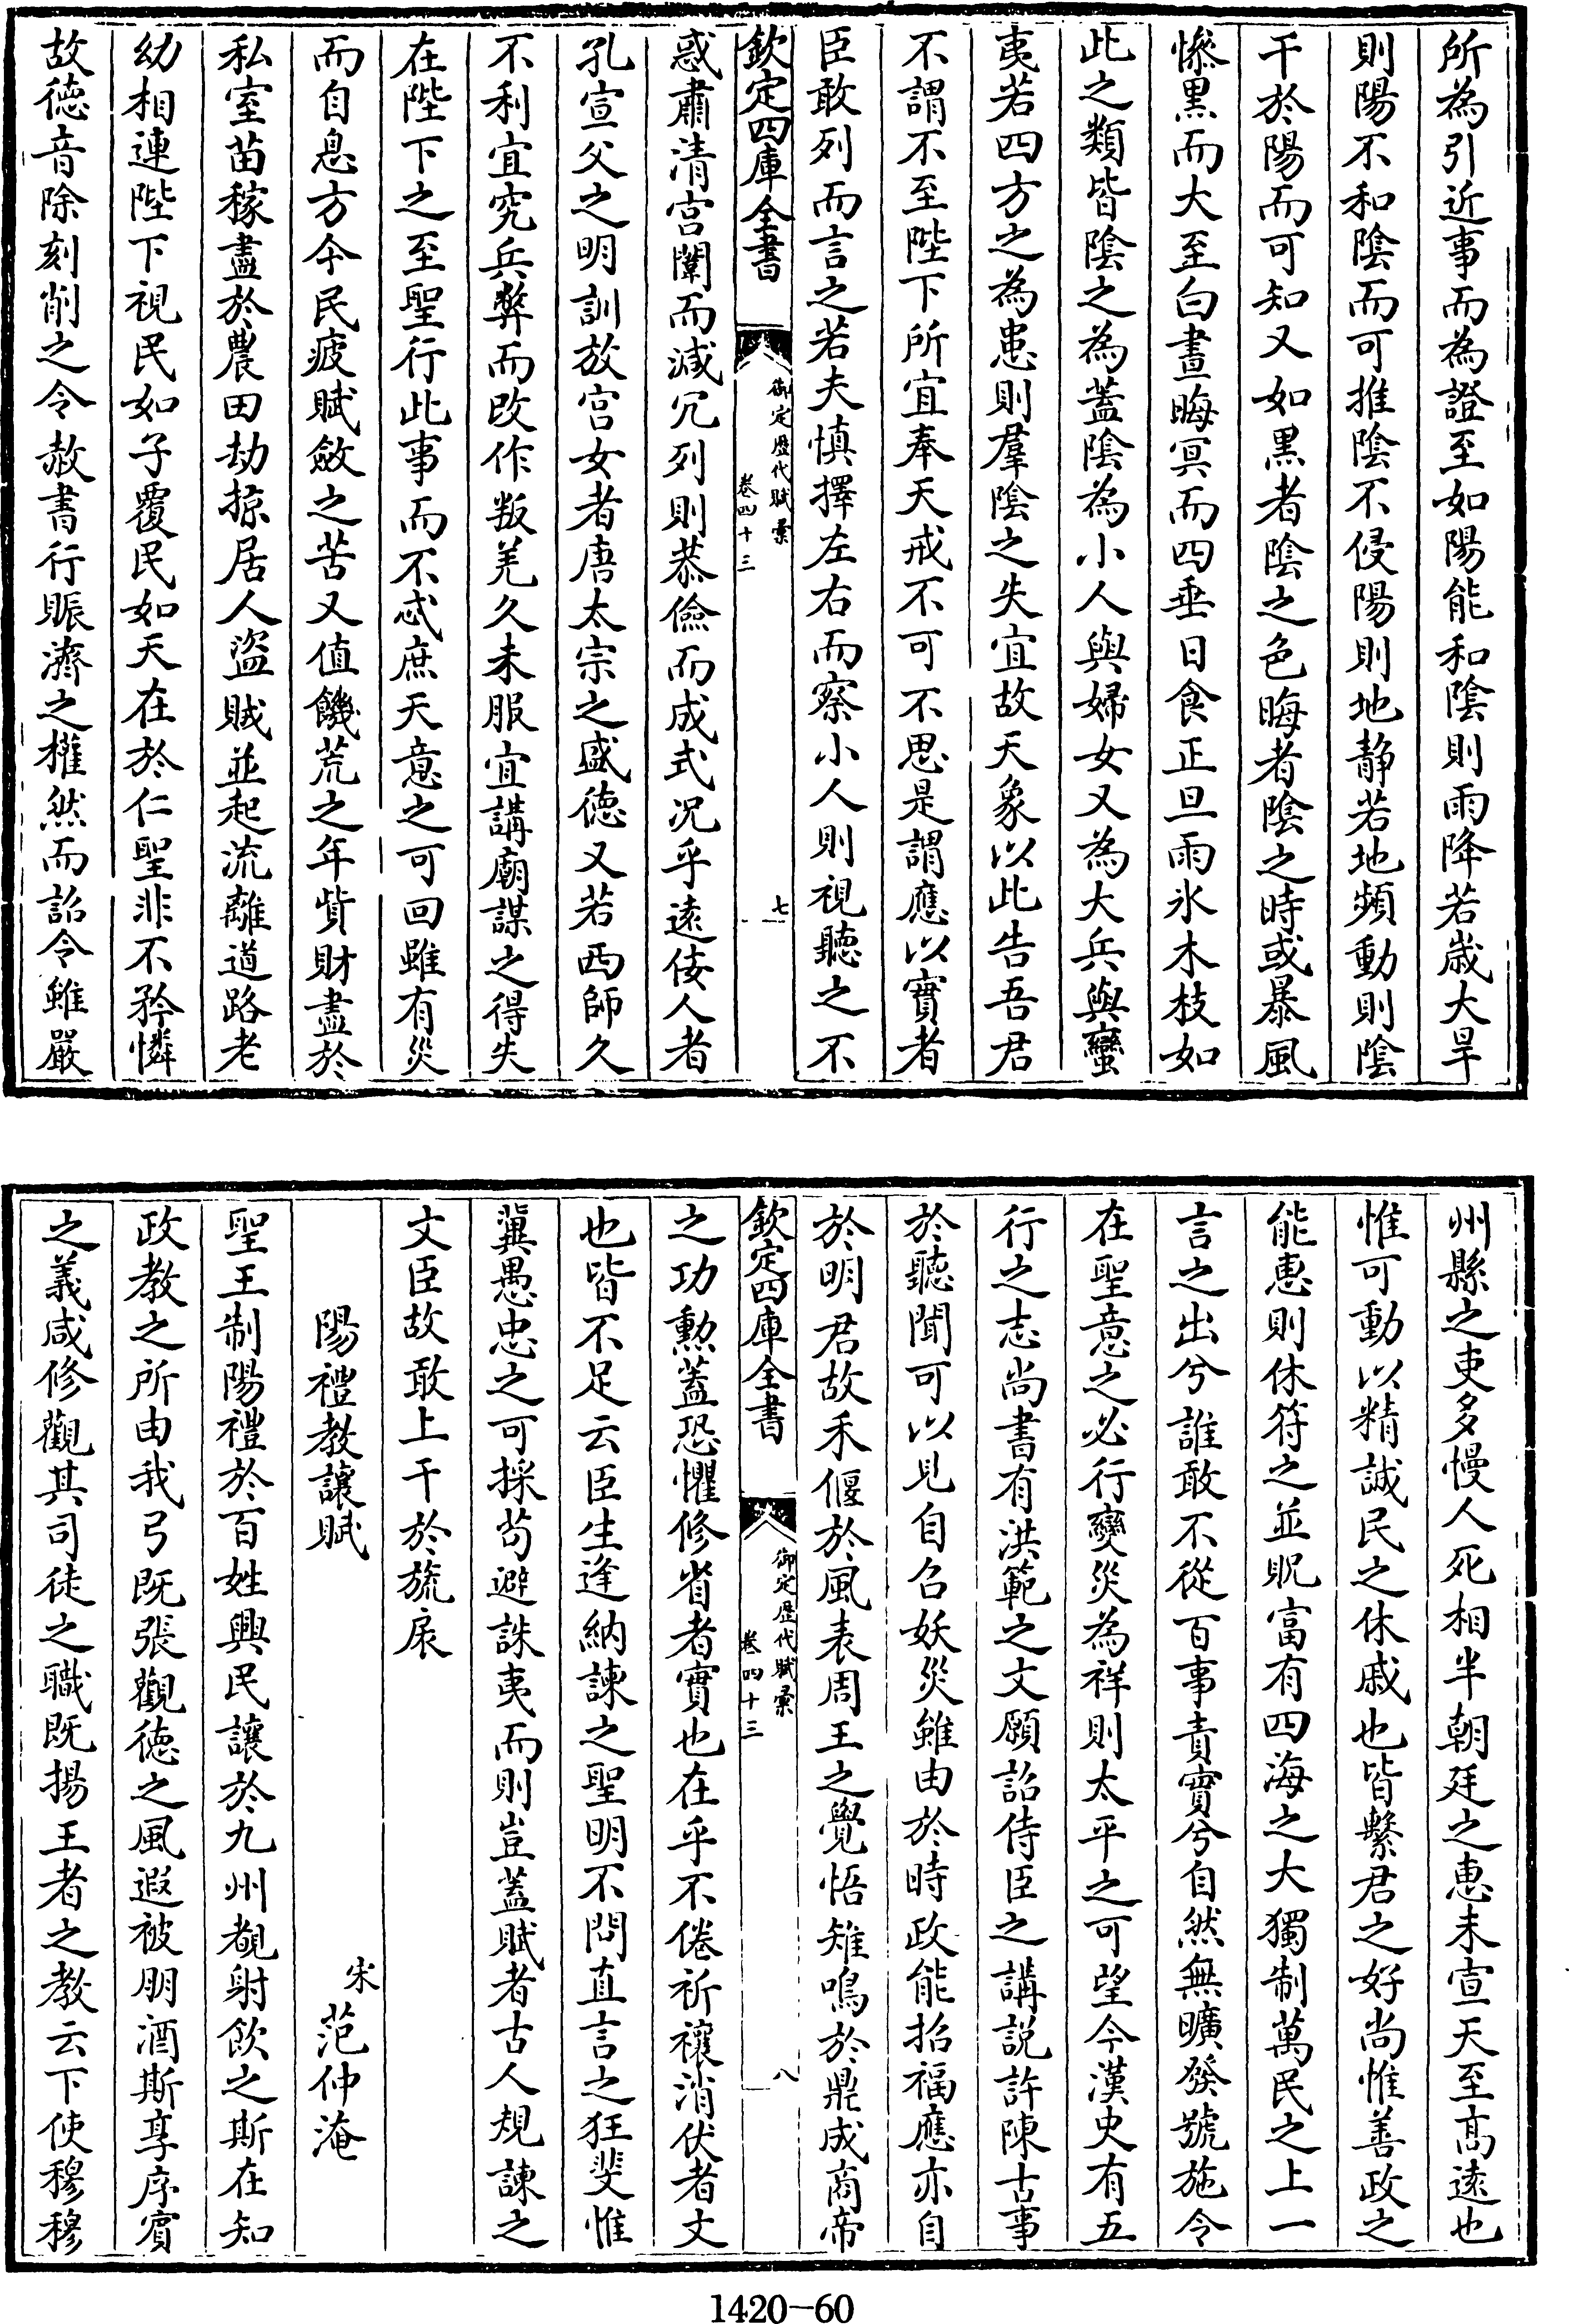 所為引近事而為證至如陽能和陰則雨降若歲大旱
則陽不和陰而可推陰不侵陽則地靜若地頻動則陰
干於陽而可知又如黑者陰之色晦者陰之時或暴風
慘黒而大至白晝晦冥而四垂日食正旦雨氷木枝如
此之類皆陰之為蓋陰為小人與婦女又為大兵與蠻
夷若四方之為患則羣陰之失宜故天象以此告吾君
不謂不至陛下所宜奉天戒不可不思是謂應以實者
臣敢列而言之若夫慎擇左右而察小人則視聽之不
欽定四庫全書
御定歴代賦彙
卷四十三
七
惑肅清宫闈而減冗列則恭儉而成式况乎遠佞人者
孔宣父之明訓放宫女者唐太宗之盛德又若西師久
不利宜究兵弊而改作叛羌久未服宜講廟謀之得失
在陛下之至聖行此事而不忒庶天意之可回雖有災
而自息方今民疲賦斂之苦又值饑荒之年貲財盡於
私室苗稼盡於農田劫掠居人盜賊並起流離道路老
幼相連陛下視民如子覆民如天在於仁聖非不矜憐
故德音除刻削之令赦書行賑濟之權然而詔令雖嚴
州縣之吏多慢人死相半朝廷之惠未宣天至髙逺也
惟可動以精誠民之休戚也皆繫君之好尚惟善政之
能惠則休符之並貺富有四海之大獨制萬民之上一
言之出兮誰敢不從百事責實兮自然無曠發號施令
在聖意之必行變災為祥則太平之可望今漢史有五
行之志尚書有洪範之文願詔侍臣之講説許陳古事
於聽聞可以見自召妖災雖由於時政能招福應亦自
於明君故禾偃於風表周王之覺悟雉鳴於鼎成商帝
欽定四庫全書
御定歴代賦彙
卷四十三
八
之功勲蓋恐懼修省者實也在乎不倦祈禳消伏者文
也皆不足云臣生逢納諫之聖明不問直言之狂斐惟
冀愚忠之可採苟避誅夷而則豈蓋賦者古人規諫之
文臣故敢上干於旒扆
陽禮教讓賦
宋范仲淹
聖王制陽禮於百姓興民讓於九州覩射飲之斯在知
政教之所由我弓既張觀德之風遐被朋酒斯享序賓
之義咸修觀其司徒之職既揚王者之教云下使穆穆
1420-60